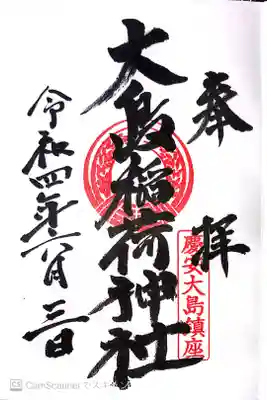 奉拝
慶安大島鎮座
大島稲荷神社
令和四年六月三日
CS CamScanner でスキャン